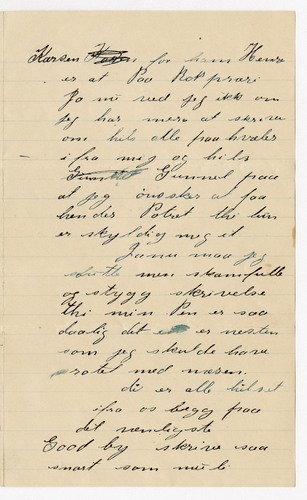 Karsen for ham Hensa
er at Paa Rok præri
Ja nu ved jeg ikke om
jeg har mere at skrive
om hels alle paa hvaler
ifra mig og hils
Gunnel paa
at jeg önsker at faa
hendes Potret thi hun
er skyldig meg et
Ja nu maa jeg
slutte men skamfulle
og stygg skrivelse
thi min Pen er saa
daarlig det er nesten
som jeg skulde have
rotet med næsen.
du er alle hilset
ifra os begg paa
det venligste
Good by skrive saa
snart som muli